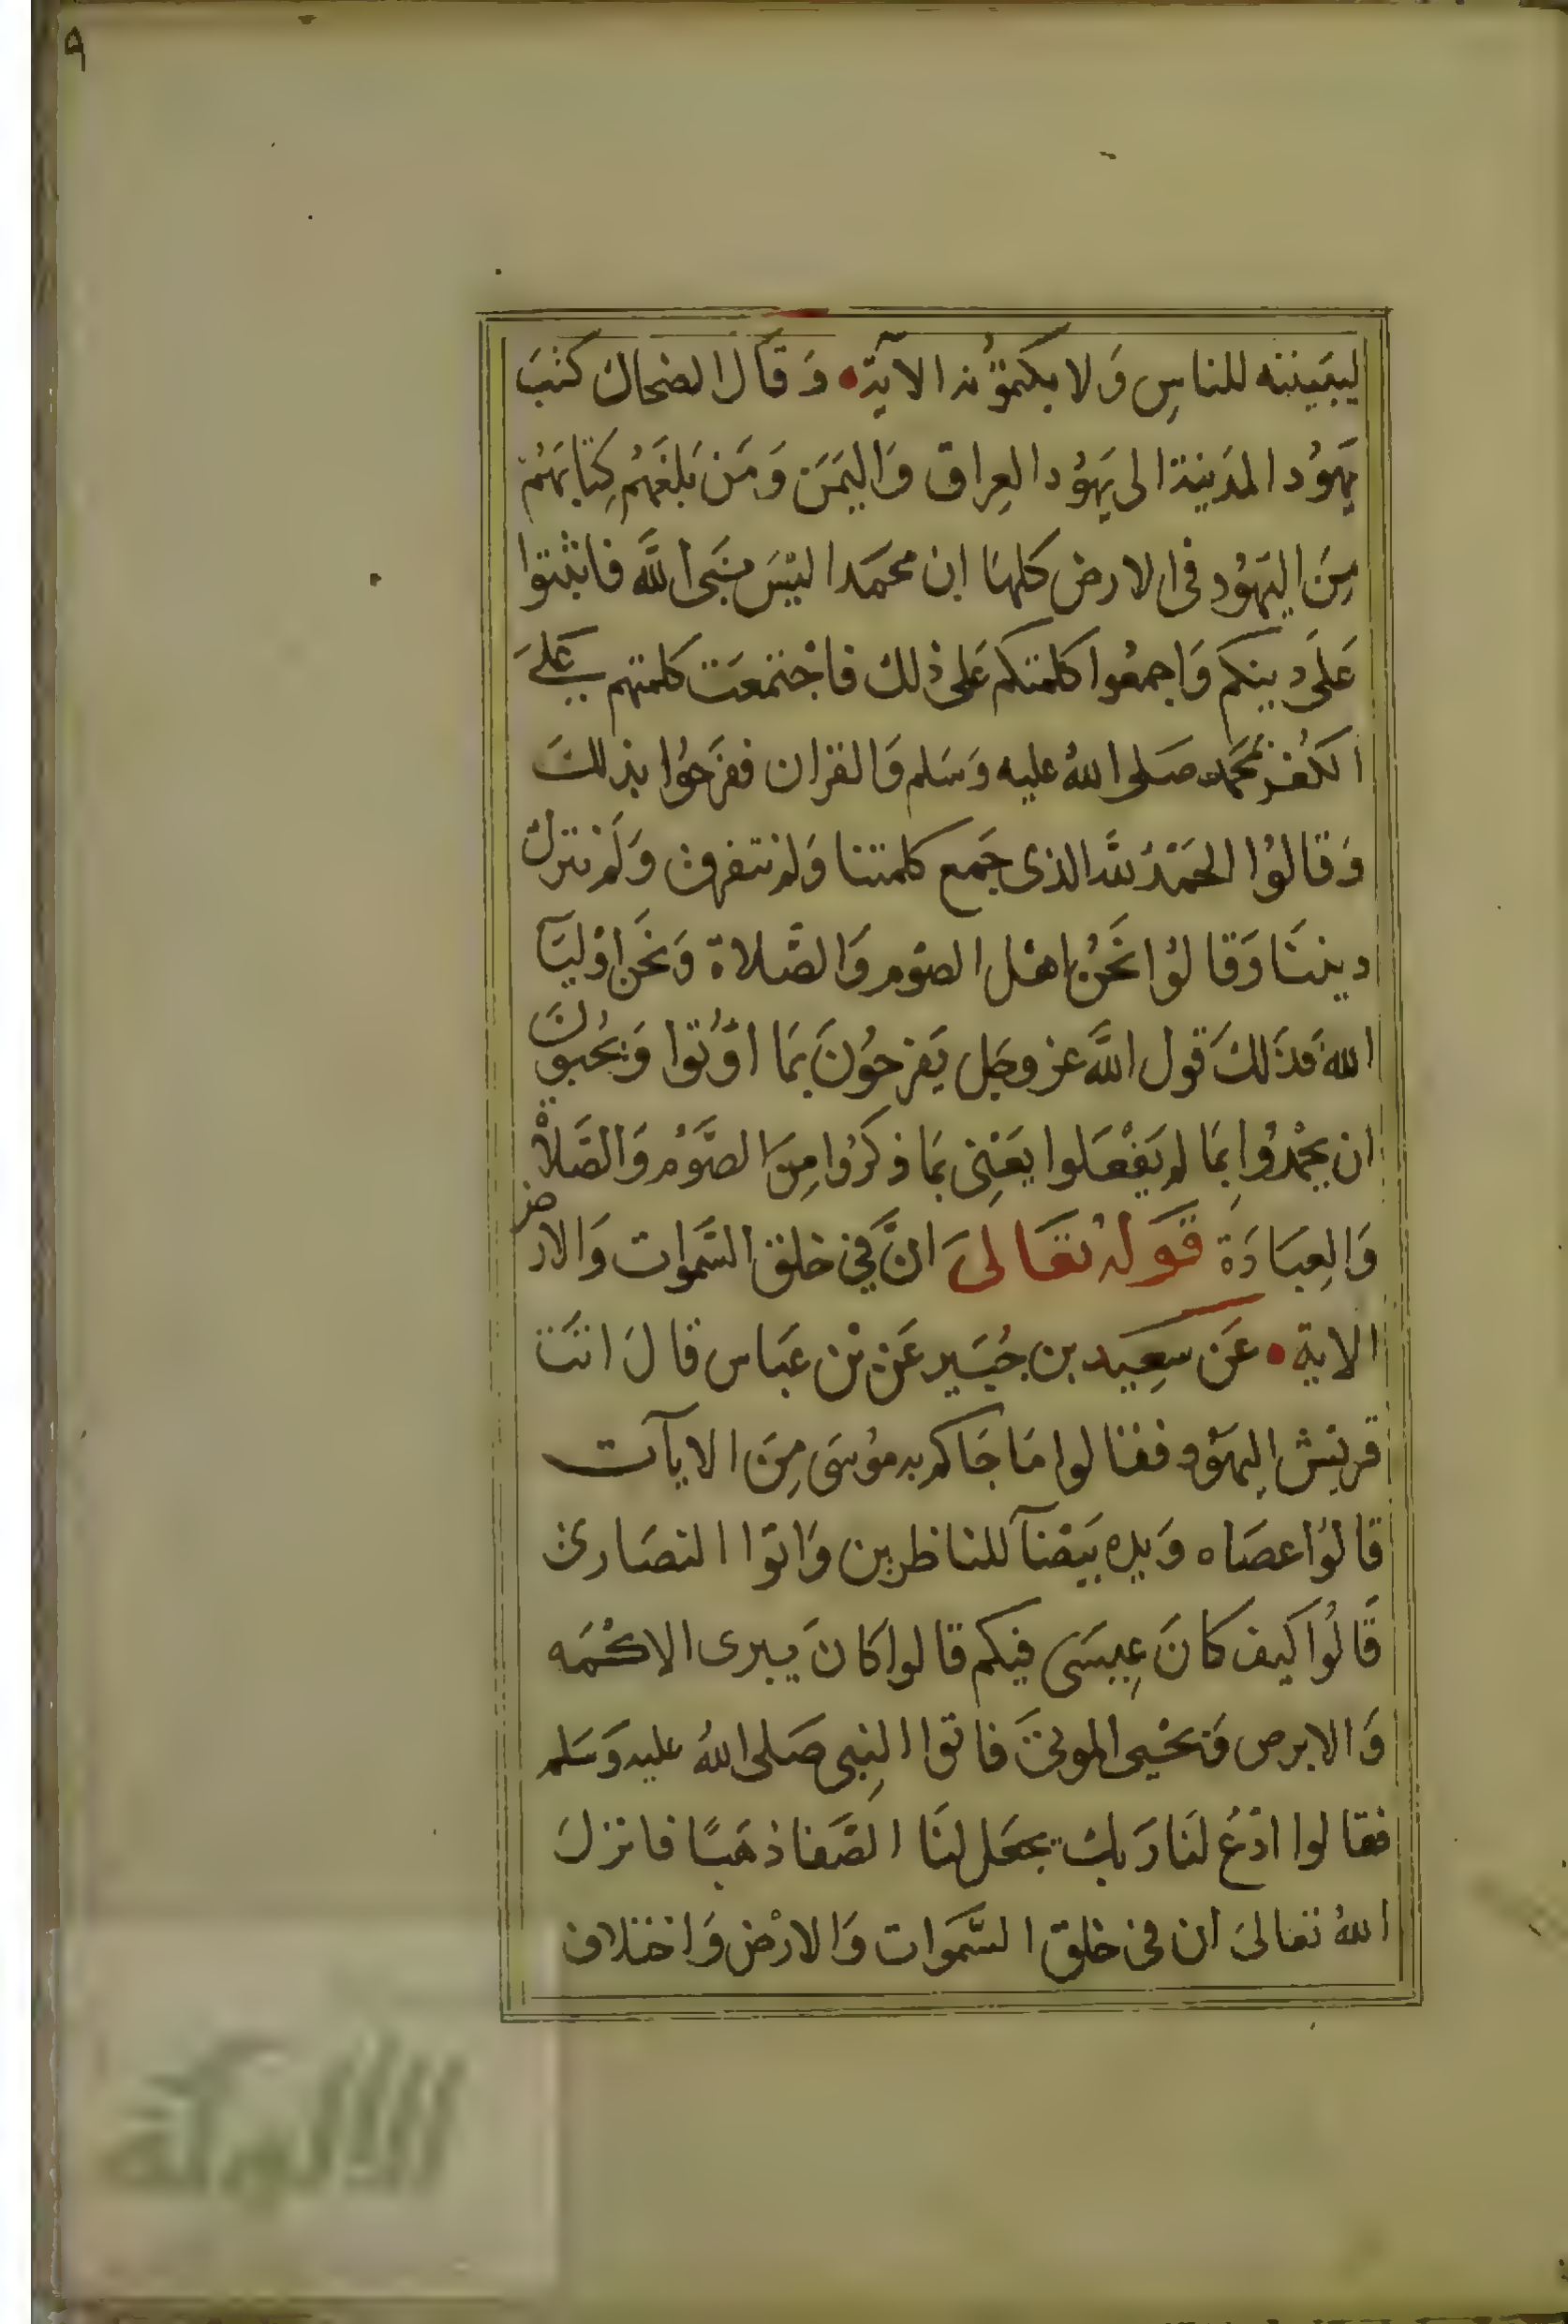 ٩
ليبيننه للناسِ وَلا يكتمُونه الآيَة وَقَال الضحاك كتبَ
يَهوُد المدَينة الى يَهوُد العِراق وَاليَمَن وَمَن بَلغَهُم كِتابَهُم
مِنَ اليَهوُد فى الارض كلهَا ان محمَدا ليْسَ بنَبى اللَّه فاثبتوا
عَلَى دينكم وَاجمعُوا كلمتكم عَلى ذلك فاجْتمعَت كلمتهم عَلىَ
الكُفر بمحَمد صَلى اللهُ عليه وَسَلم وَالقران ففرَحوُا بذلكَ
وَقالوُا الحَمْدُ للَّه الذى جَمع كلمتنا وَلم نتفرق وَلَم نترك
ديننَا وَقالوُا نَحنُ اهْل الصوْم وَالصَّلاة وَنَحن اوْليَآ
الله فذَلكَ قول اللَّه عز وجَل يَفرحوُنَ بمَا اوُتوا وَيحُبونَ
ان يحْمدُوا بِمَا لم يَفْعَلوا يعَنِى بمَا ذكَرُوا مِنَ الصَّوْم وَالصَّلاة
وَالعِبَادَة قَولهُ تعَالىَ انَّ فى خلق السَّموات وَالارض
الاية عَن سَعِيد بن جُبَير عَن بْن عَباس قالَ اتَت
قريْش اليهَوُد فقالوا مَا جَاكم به موُسَى مِنَ الايآت
قالوُا عصَاه وَيده بَيضْآ للناظرين وَاتوَا النصَارى
قَالوُا كيف كانَ عِيسَى فيكم قالوا كانَ يبرى الاكْمَه
وَالابرص وَيحْيى الموتىَ فاتوا النبِى صَلى اللهُ عليه وَسَلم
فقالوا ادْعُ لنَا رَبك يجعَل لنَا الصَّفا ذهَبًا فانزلَ
اللهُ تعالىَ ان فى خلق السَّموَات وَالارْض وَاختلاف
الألوكة